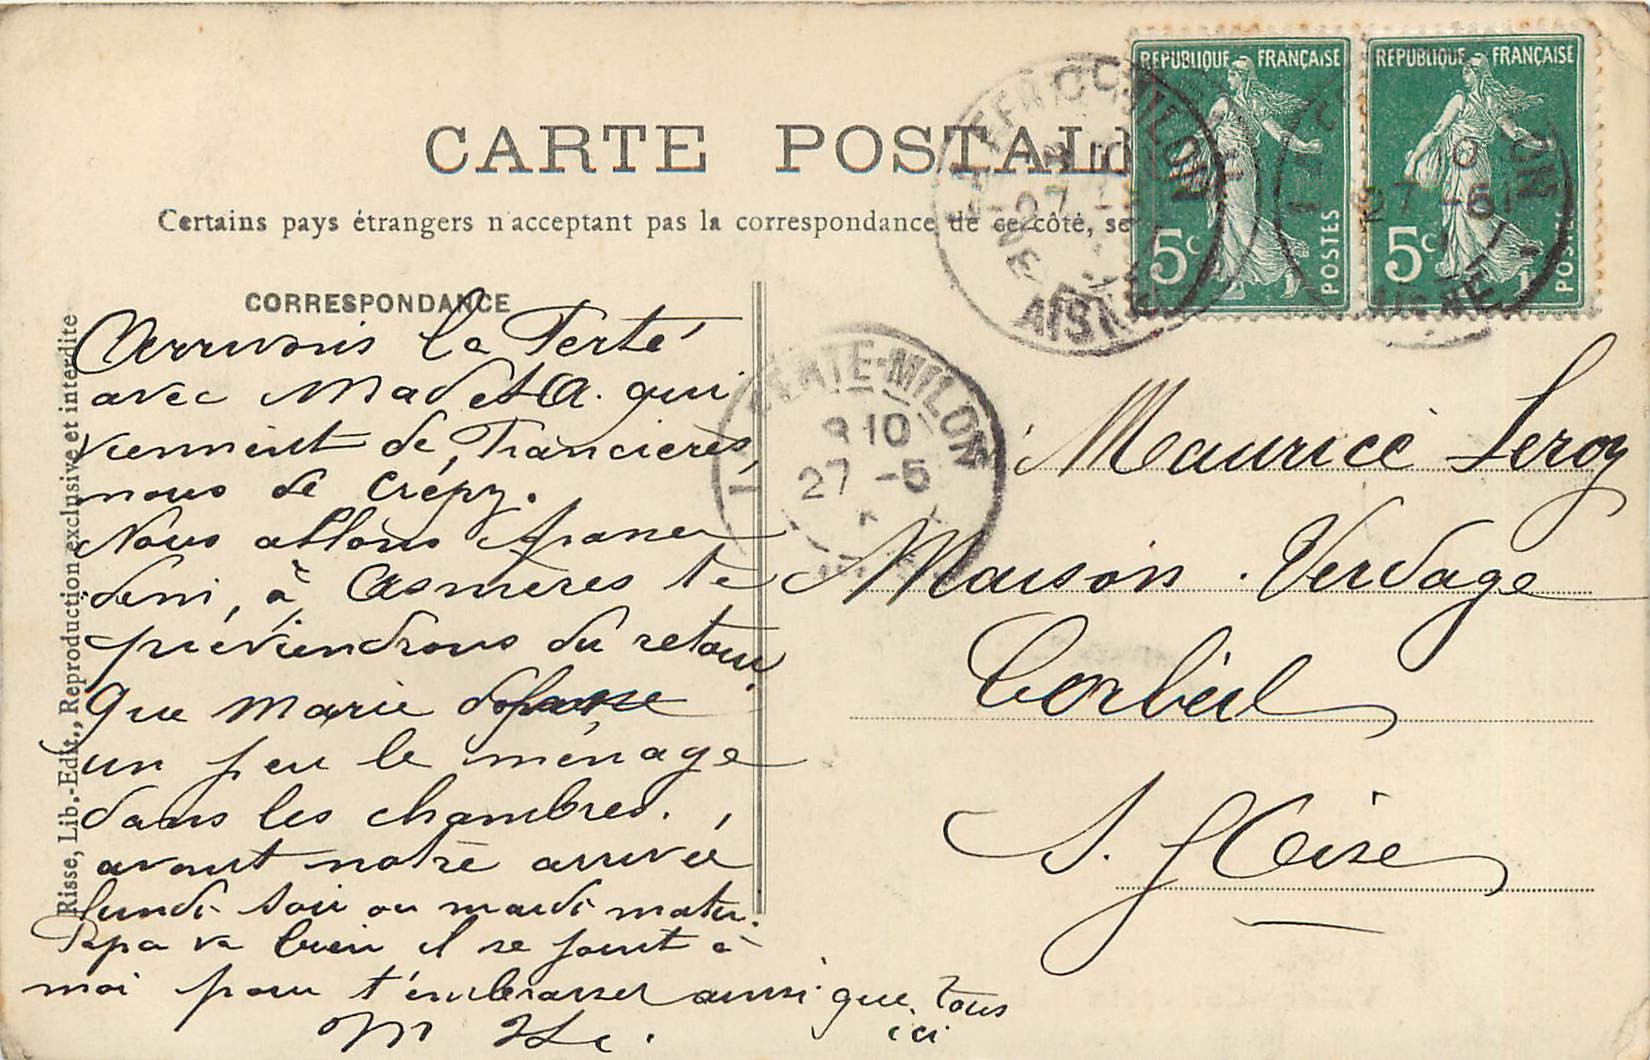 CARTE POSTALE
Certains pays étrangers n'acceptent pas la correspondance de ce côté, se
REPUBLIQUE FRANÇAISE
5c POSTES
REPUBLIQUE FRANÇAISE
5c POSTES
27 -5
AISNE
LA FERTE-MILON
8 10
27 -5
CORRESPONDANCE
Risse, Lib.-Edit., Reproduction exclusive et interdite
Arrivons la Ferté
avec Mad et A. qui
viennent de
nous de Crépy.
Nous allons
demi, à Asnieres te
préviendrons du retour
Que Marie
un peu le ménage
dans les chambres.
avant notre arrivée
lundi soir ou mardi matin.
Papa va bien il se joint à
moi pour t'embrasser aussi que tous
ici
Maurice Leroy
Maison Verdage
Corbeil
S. &amp; Oise